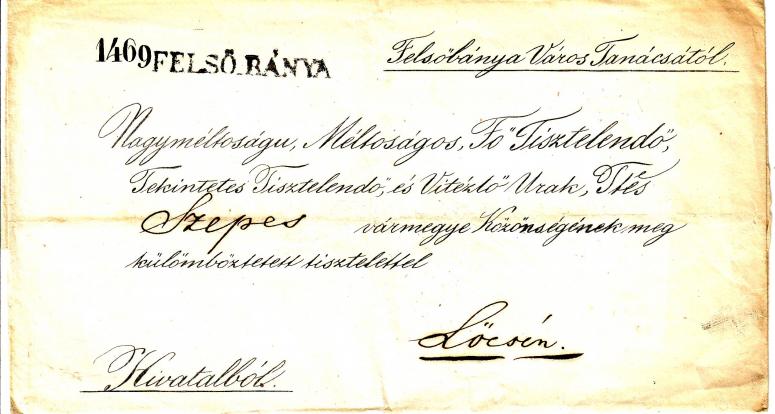 1469 FELSŐ.BÁNYA
Felsőbánya Város Tanácsától.
Nagyméltoságu, Méltoságos, Fő Tisztelendő,
Tekintetes Tisztelendő, és Vitézlő Urak, Ttēs
Szepes vármegye Közönségének meg
külömböztetett tisztelettel
Lőcsén.
Hivatalból.